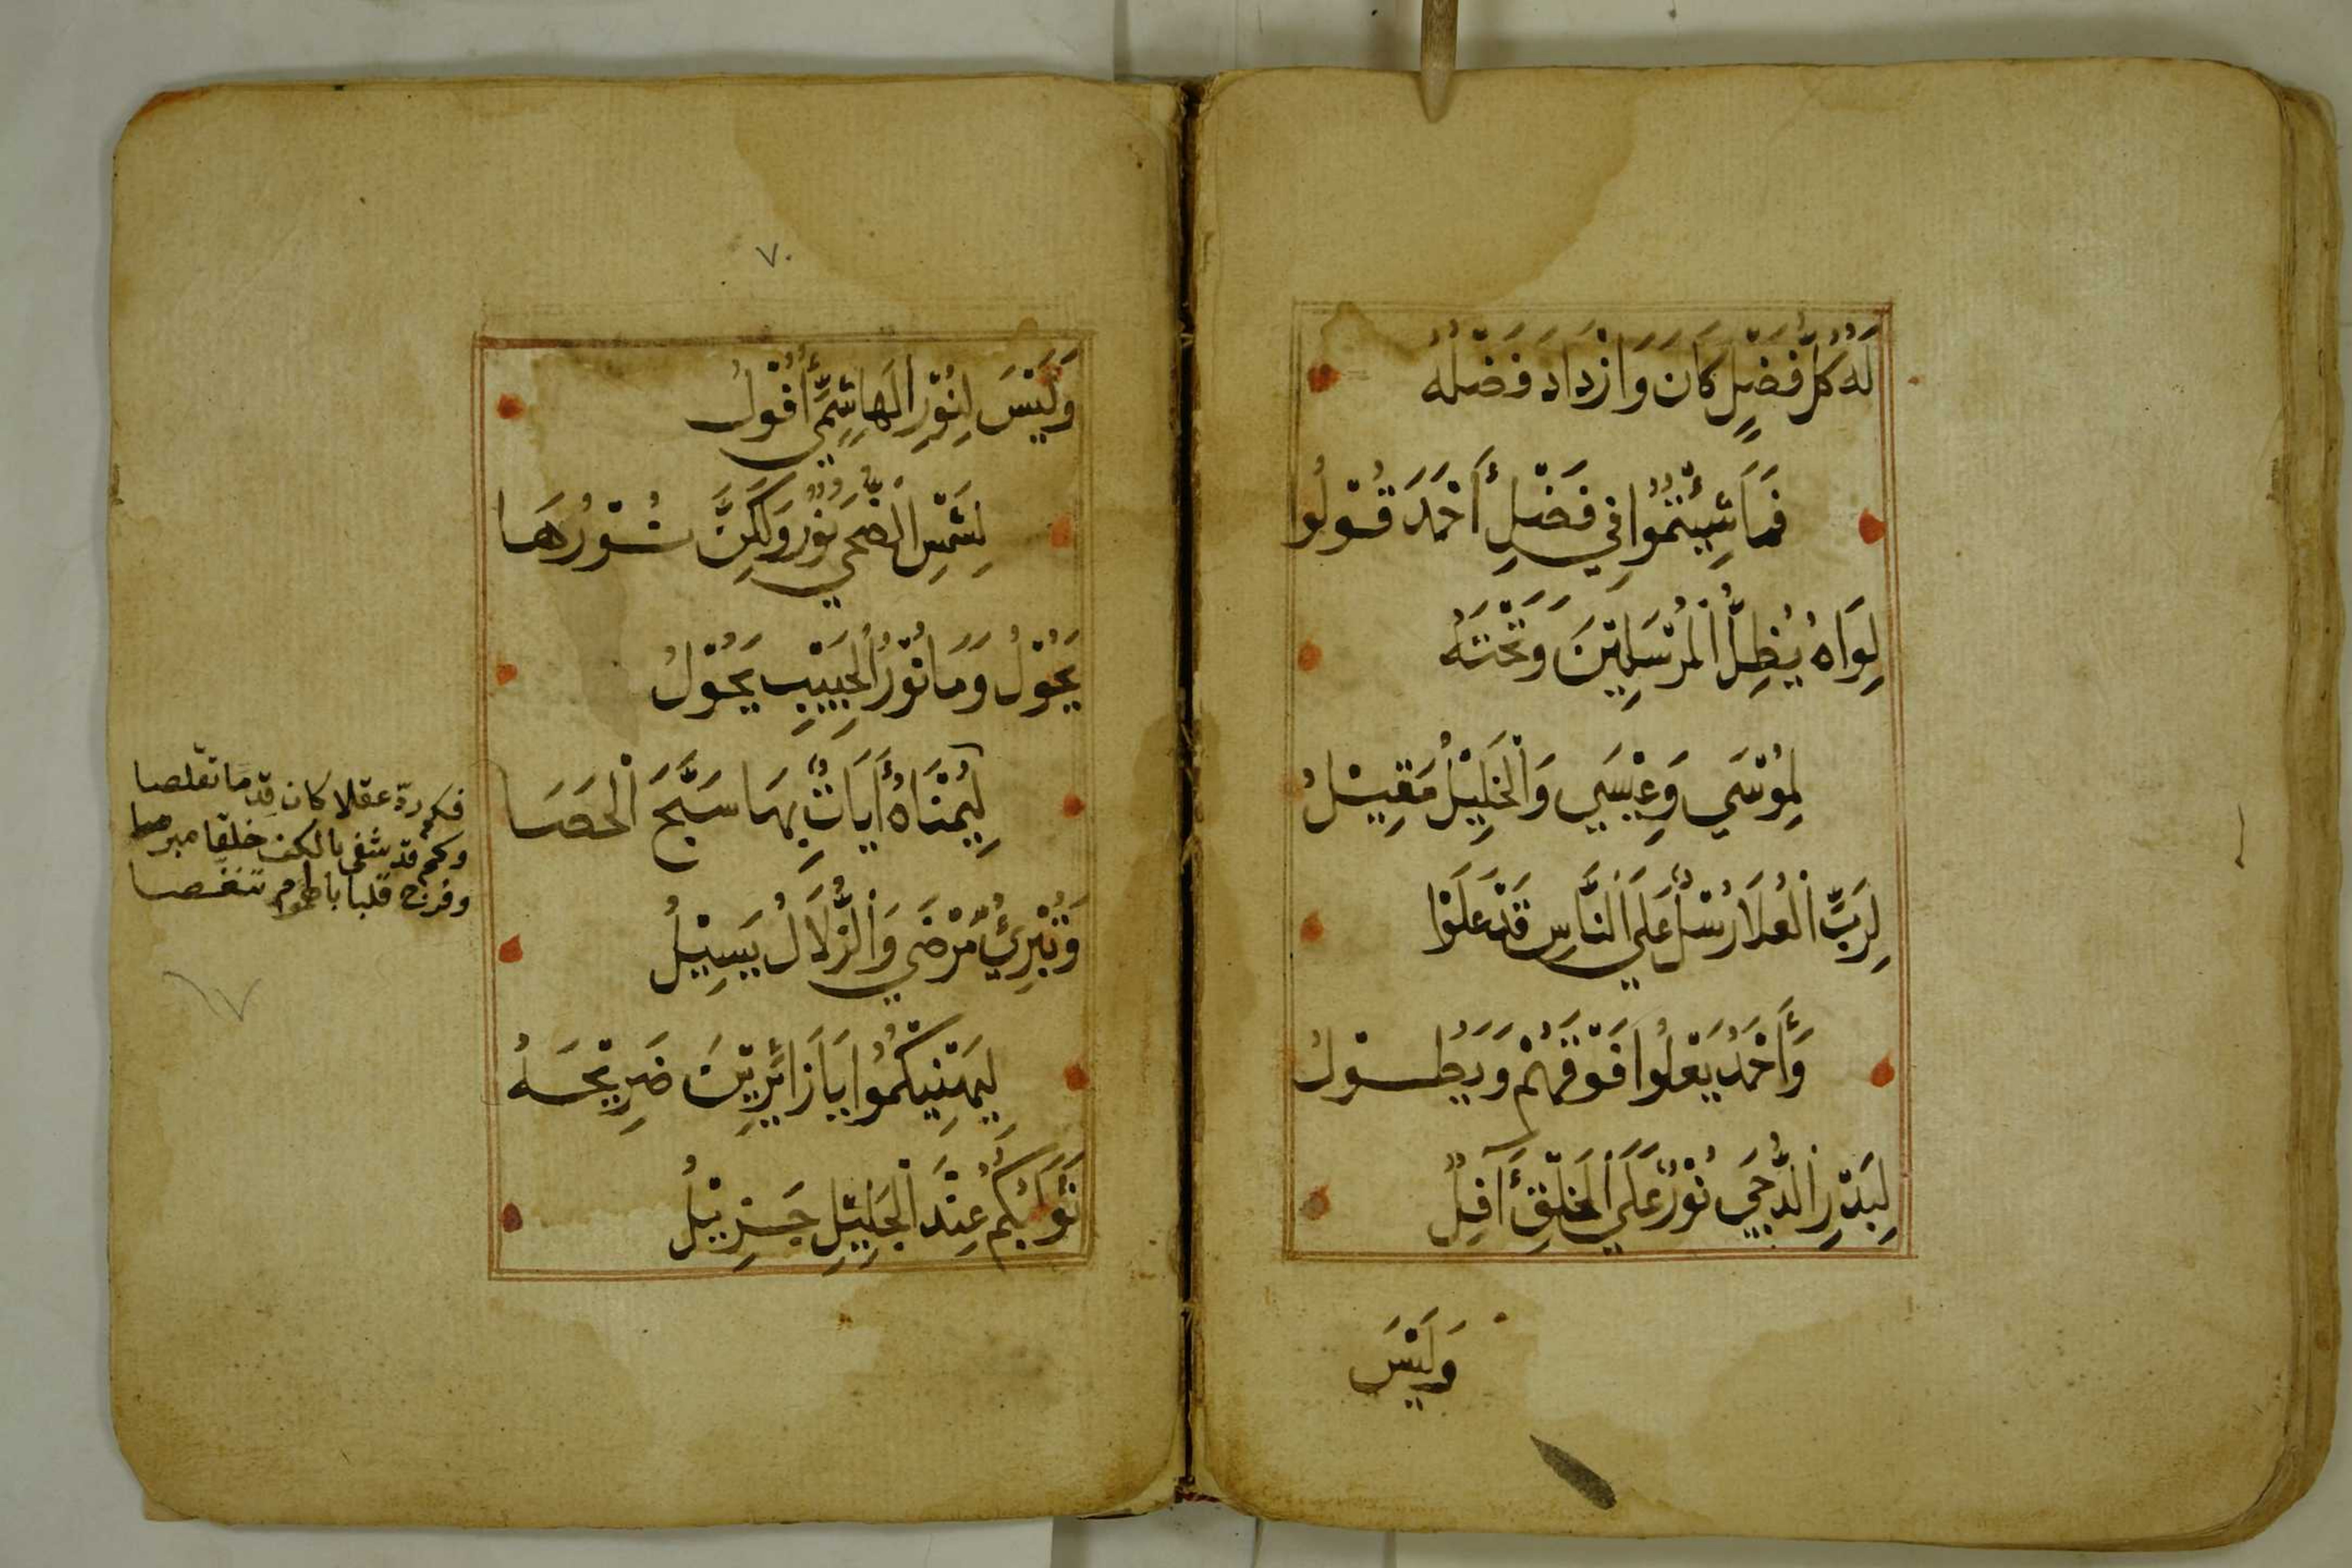 لَهُ كُلُّ فَضْلٍ كَانَ وَازْدَادَ فَضْلُهُ
فَمَا شِيئْتُمُوا فِي فَضْلِ أَحْمَدَ قُوْلُو
لِوَاهُ يُظِلُّ الْمُرْسَلِيْنَ وَتَحْتَهُ
لِمُوْسَي وَعِيْسَي وَالْخَلِيْلُ مَقِيْلُ
لِرَبِّ الْعُلَا رُسْلٌ عَلَي النَّاسِ قَدْ عَلَوْا
وَأَحْمَدُ يَعْلُوا فَوْقَهُمْ وَيَطُوْلُ
لِبَدْرِ الدُّجَي نُوْرٌ عَلَي الْخَلْقِ أَفِلٌ
وَلَيْسَ
٧٠
وَلَيْسَ لِنُوْرِ الْهَاشِمِيِّ أُفُوْلُ
لِشَمْسِ الْضُّحَي نُوْرٌ وَلَكِنَّ نُوْرُهَا
يَحُوْلُ وَمَا نُوْرُ الْحَبِيْبِ يَحُوْلُ
لِيُمْنَاهُ أَيَاتٌ بِهَا سَبَّحَ الْحَصَا
وَتُبْرِئُ مَرْضَي وَالزُّلَالُ يَسِيْلُ
لِيَهْنِيكُمُوا يَا زَائِرِيْنَ ضَرِيْحَهُ
ثَوَابُكُمُ عِنْدَ الْجَلِيْلِ جَزِيْلُ
فكم ردّ عقلا كان قدما تقلصا
وكم قد شفى بالكف خلقا مبرصا
وفرج قلبا تنغصا